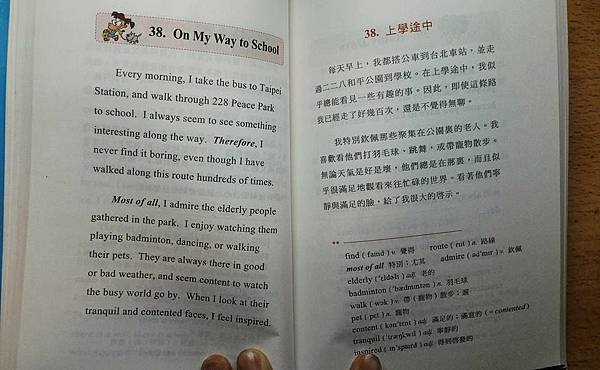 38. On My Way to School
Every morning, I take the bus to Taipei
Station, and walk through 228 Peace Park
to school. I always seem to see something
interesting along the way. Therefore, I
never find it boring, even though I have
walked along this route hundreds of times.
Most of all, I admire the elderly people
gathered in the park. I enjoy watching them
playing badminton, dancing, or walking
their pets. They are always there in good
or bad weather, and seem content to watch
the busy world go by. When I look at their
tranquil and contented faces, I feel inspired.
38. 上學途中
每天早上，我都搭公車到台北車站，並走
過二二八和平公園到學校。在上學途中，我似
乎總能看見一些有趣的事。因此，即使這條路
我已經走了好幾百次，還是不覺得無聊。
我特別欽佩那些聚集在公園裏的老人。我
喜歡看他們打羽毛球、跳舞，或帶寵物散步。
無論天氣是好是壞，他們總是在那裏，而且似
乎很滿足地觀看來往忙碌的世界。看著他們寧
靜與滿足的臉，給了我很大的啓示。
find ( faɪnd ) v. 覺得 route ( rut ) n. 路線
most of all 特別；尤其 admire ( əd'maɪr ) v. 欽佩
elderly ( 'ɛldəlɪ ) adj. 老的
badminton ( 'bædmɪntən ) n. 羽毛球
walk ( wɔk ) v. 帶 ( 寵物 ) 散步；遛
pet ( pɛt ) n. 寵物
content ( kən'tɛnt ) adj. 滿足的；滿意的 ( = contented )
tranquil ( 'træŋkwɪl ) adj. 寧靜的
inspired ( ɪn'spaɪrd ) adj. 得到啓發的